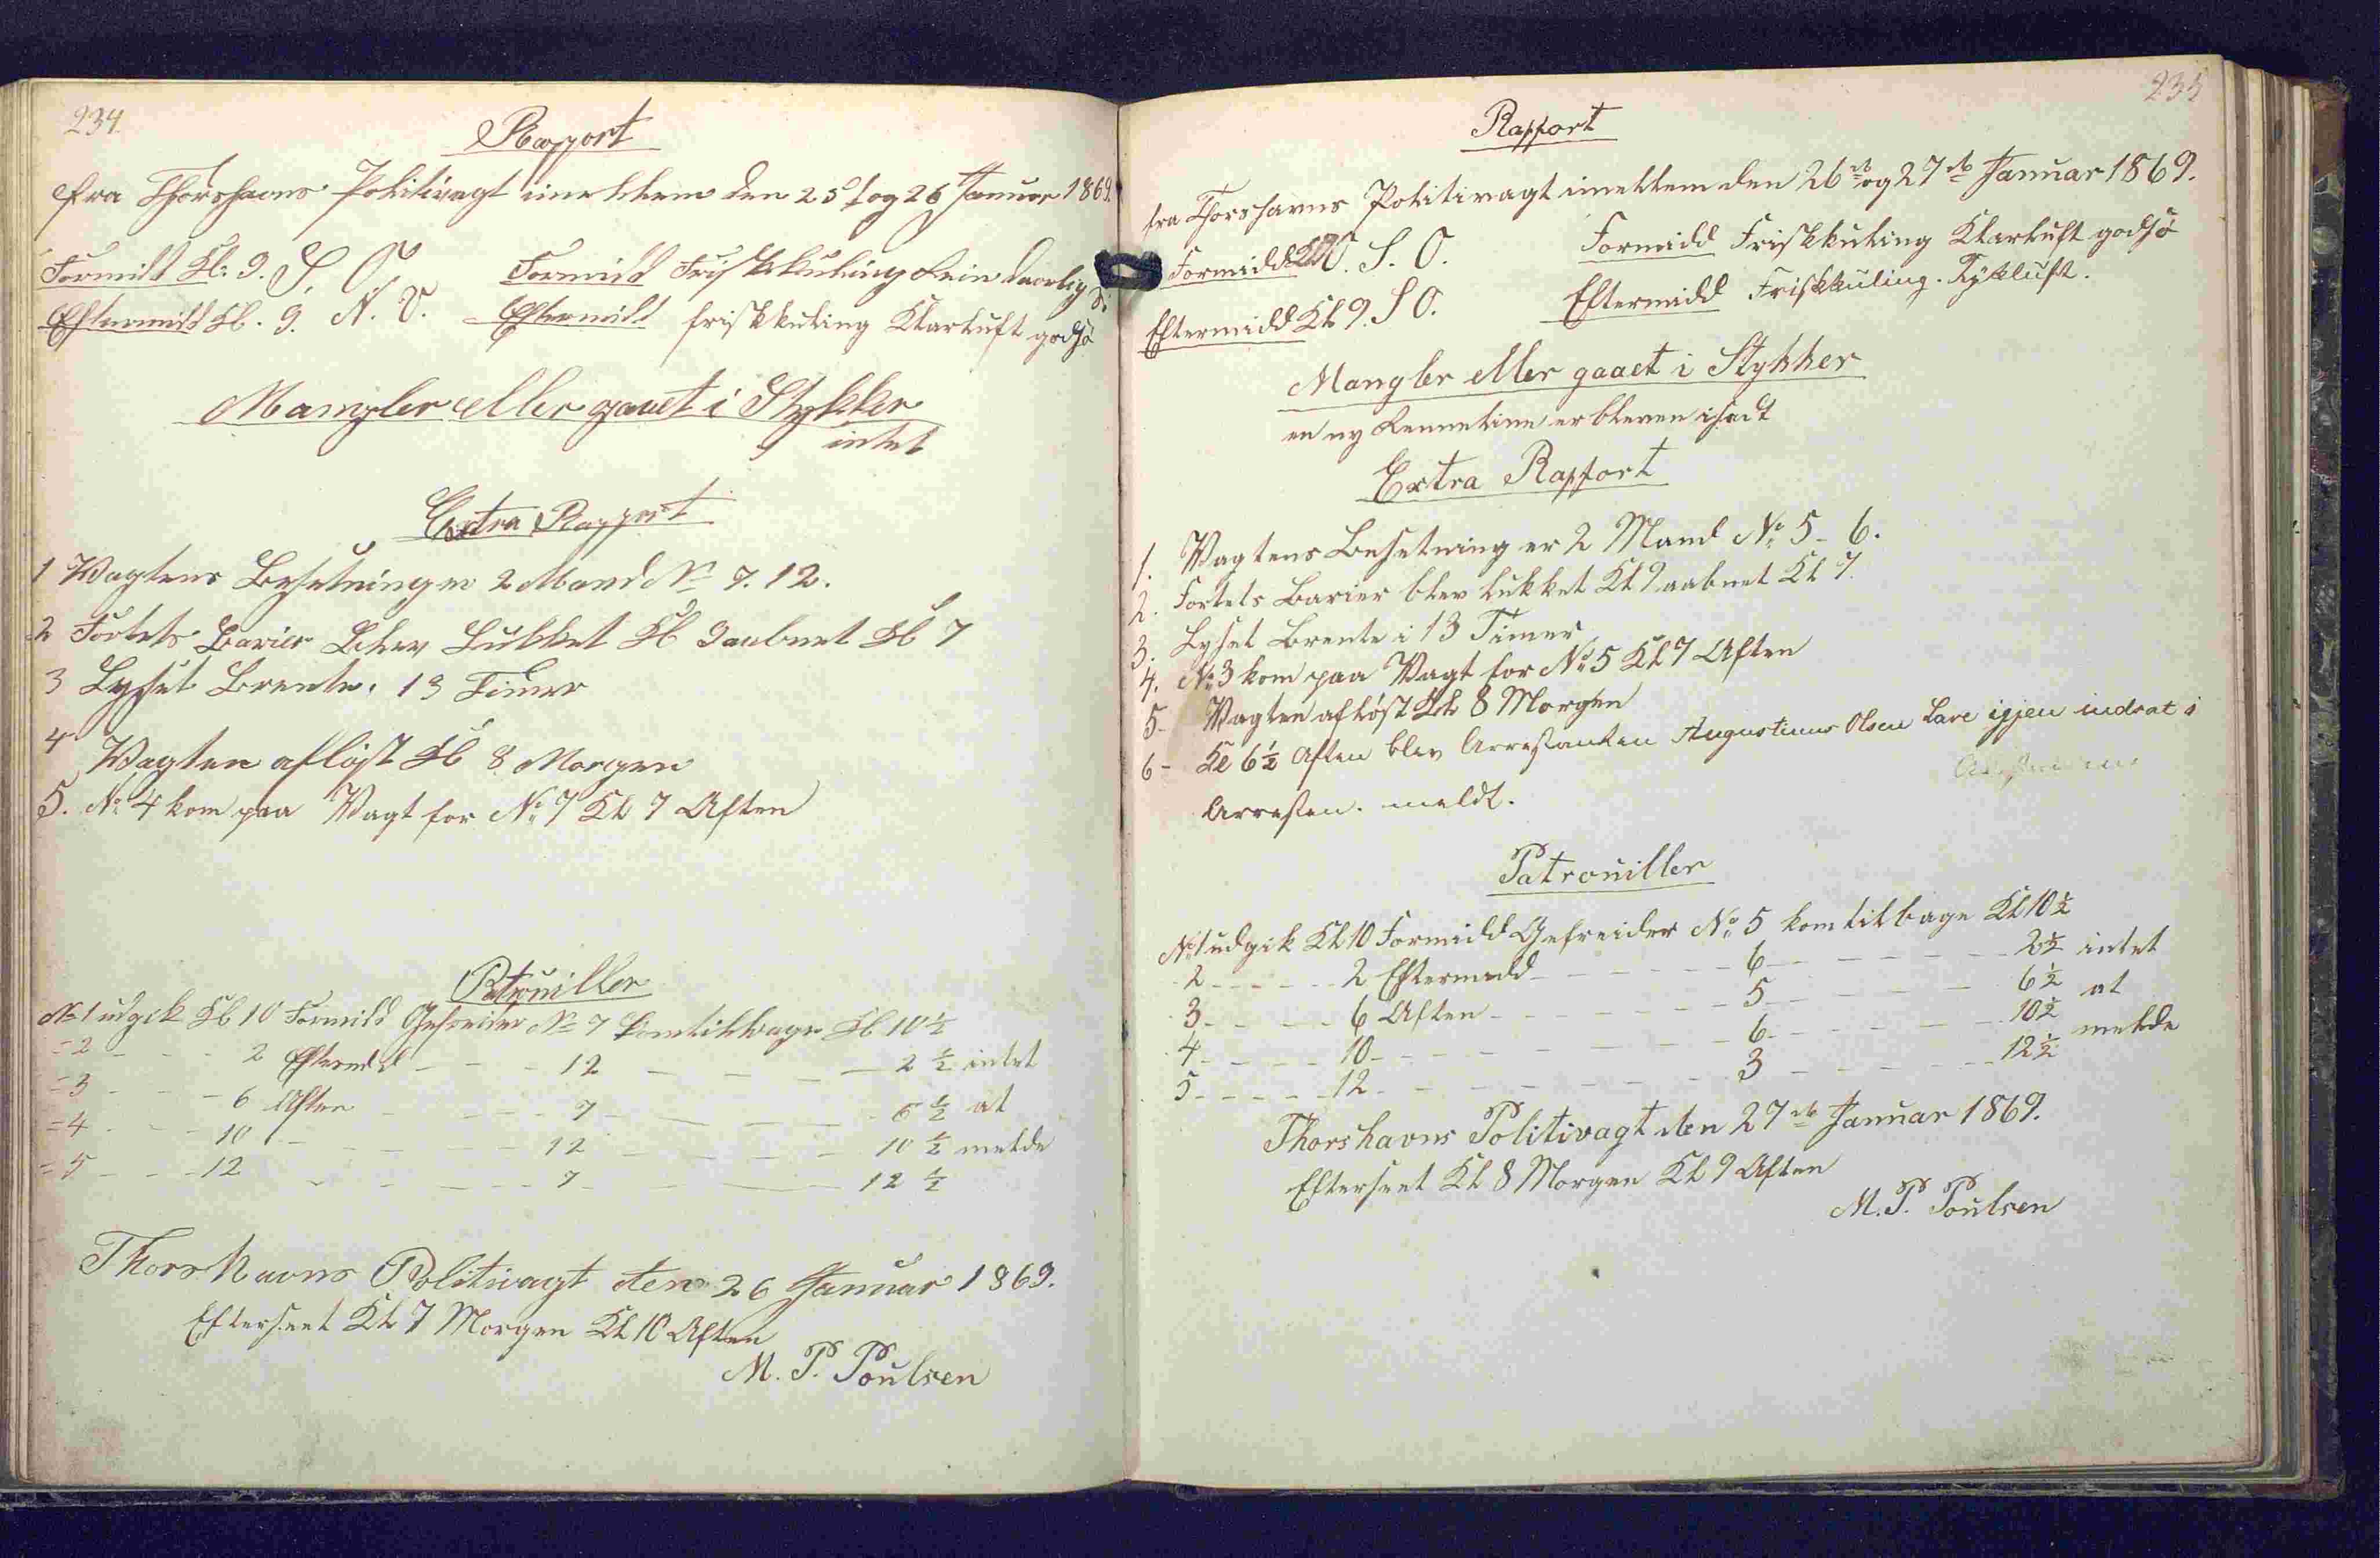 234.
Rapport
fra Thorshavns Politivagt imellem den 25 og 26 Januar 1869.
Formidd Kl. 9. S. O. Formidd Friskkuling Rein daarlig Sö
Eftermidd Kl. 9. N. V. Eftermidd friskkuling Klarluft godsö
Mangler eller gaaet i Stykker
intet
Extra Rapport
1 Vagtens Besetning er 2 Mand No 7. 12.
2 Fortets Barier Blev Lukket Kl 9 aabnet Kl 7
3 Lyset Brente i 13 Timer
4 Vagten aflöst Kl 8 Morgen
5. No 4 kom paa Vagt for No 7 Kl 7 Aften
Patrouiller
No 1 udgik Kl 10 Formidd Gefreider No 7 kom tilbage Kl 10½
=2 - - - 2 Eftermidd - - - 12 - - - 2½ intet
=3 - - - 6 Aften - - - 7 - - - 6½ at
=4 - - - 10 - - - 12 - - - 10½ melde
=5 - - - 12 - - - 7 - - - 12½
Thorshavns Politivagt den 26 Januar 1869.
Efterseet Kl 7 Morgen Kl 10 Aften
M. P. Poulsen
235
Rapport
fra Thorshavns Politivagt imellem den 26de og 27de Januar 1869.
Formidd O. S. O. Formidd Friskkuling Klarluft godsö
Eftermidd Kl 9. S O. Eftermidd Friskkuling. Tykluft.
Mangler eller gaaet i Stykker
en ny er bleven isadt
Extra Rapport
1. Vagtens Besetning er 2 Mand No 5 - 6.
2. Fortets Barier blev lukket Kl 9 aabnet Kl 7.
3. Lyset Brente i 13 Timer
4. No 3 kom paa Vagt for No 5 Kl 7 Aften
5- Vagten aflöst Kl 8 Morgen
6- Kl 6½ Aften blev Arrestanten Augustinus Olsen Lave igjen indsat i
Arresten. meldt.
Patrouiller
No 1 udgik Kl 10 Formidd Gefreider No 5 kom tilbage Kl 10½
2 - - - 2 Eftermidd - - - 6 - - - 2½ intet
3 - - - 6 Aften - - - 5 - - - 6½ at
4 - - - 10 - - - 6 - - - 10½ melde
5 - - - 12 - - - 3 - - - 12½
Thorshavns Politivagt den 27de Januar 1869.
Efterseet Kl 8 Morgen Kl 9 Aften
M. P. Poulsen